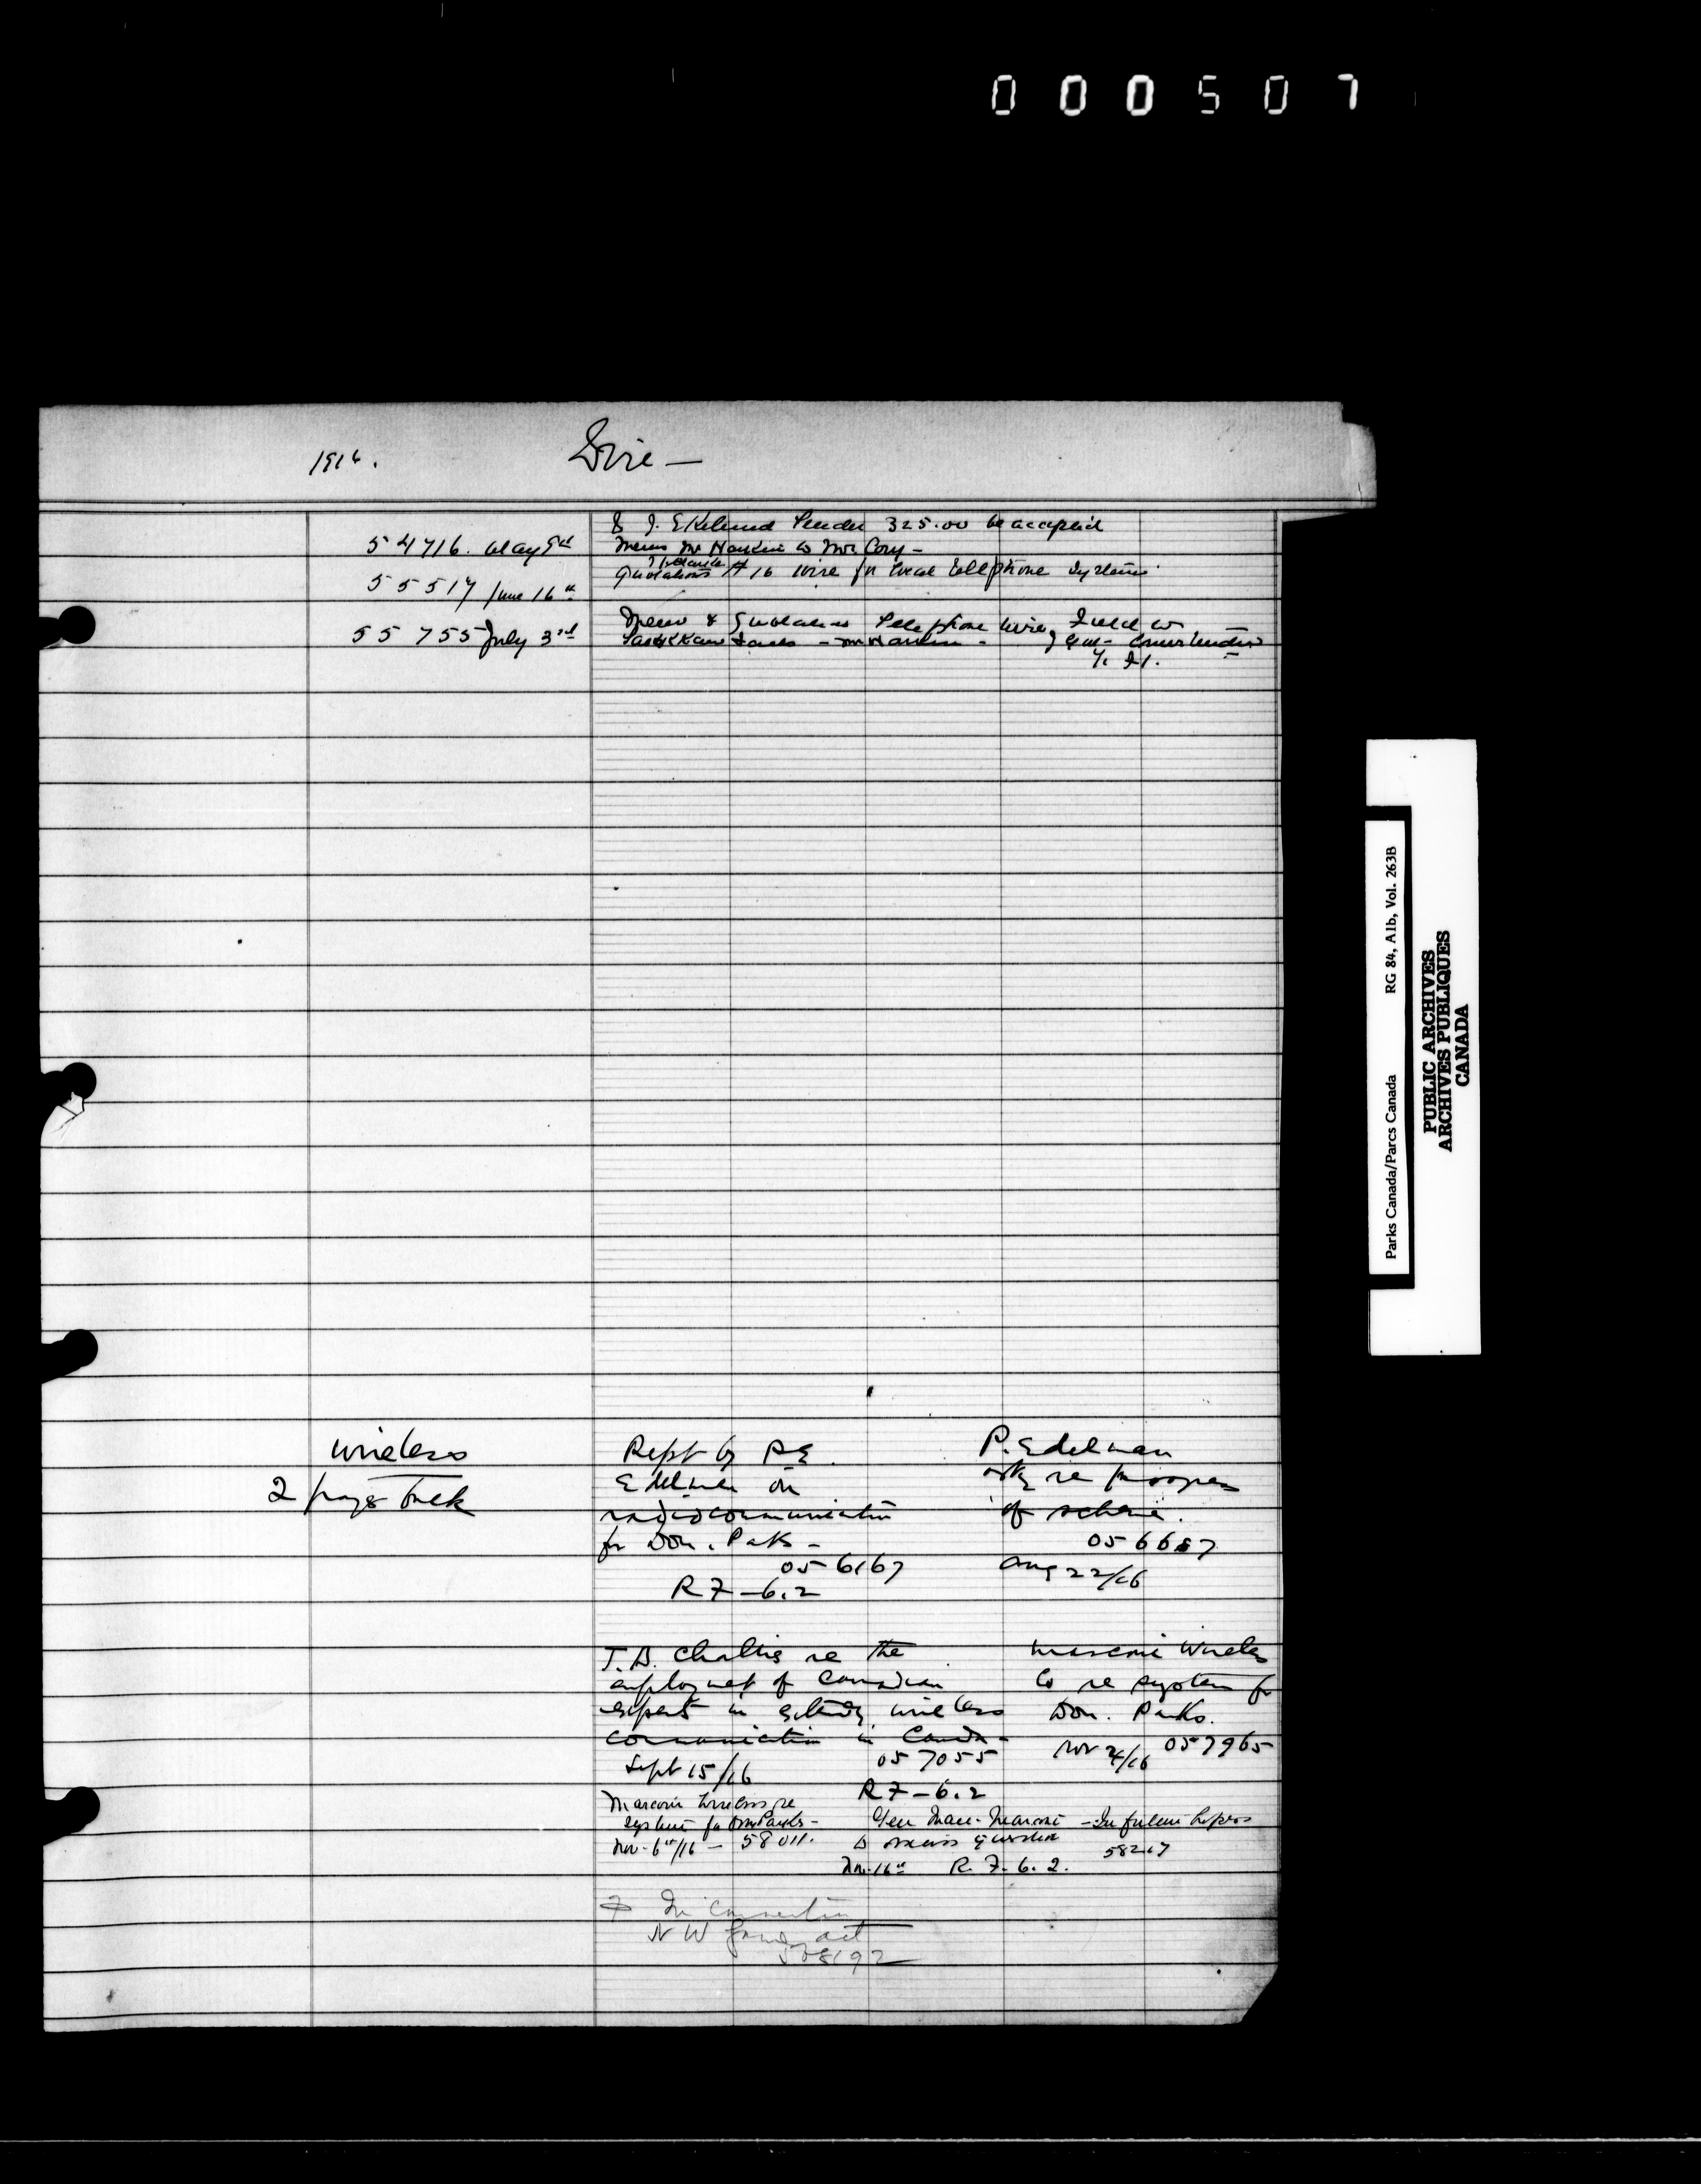 000507
1916. Wire —
& J. Ekelund Tender 325.00 be accepted
54716. May 9th Memo Mr Harkin to Mr Cory —
55517 June 16th Quotations # 16 wire for local telephone systems
55755 July 3rd Memo & Quotations Telephone wire
— Mr Harkin —
wireless
2 pages back
Rept by P.E.
Edelman on
radiocommunication
for Dom. Parks —
056167
R7 – 6.2
P. Edelman
re progress
of scheme.
056687
Aug 22/16
T.B. re the
employment of Canadian
experts in wireless
communication in Canada —
Sept 15/16 057055
R7 – 6.2
Marconi Wireless
Co re system for
Dom. Parks.
Nov 4/16 057965
Marconi Wireless re
system for Dom Parks —
Nov. 6th/16 — 58011.
Marconi —
to discuss question
58217
Nov. 16th R. 7. 6. 2.
In connection
N W Game act
58192
Parks Canada/Parcs Canada RG 84, A1b, Vol. 263B
PUBLIC ARCHIVES
ARCHIVES PUBLIQUES
CANADA